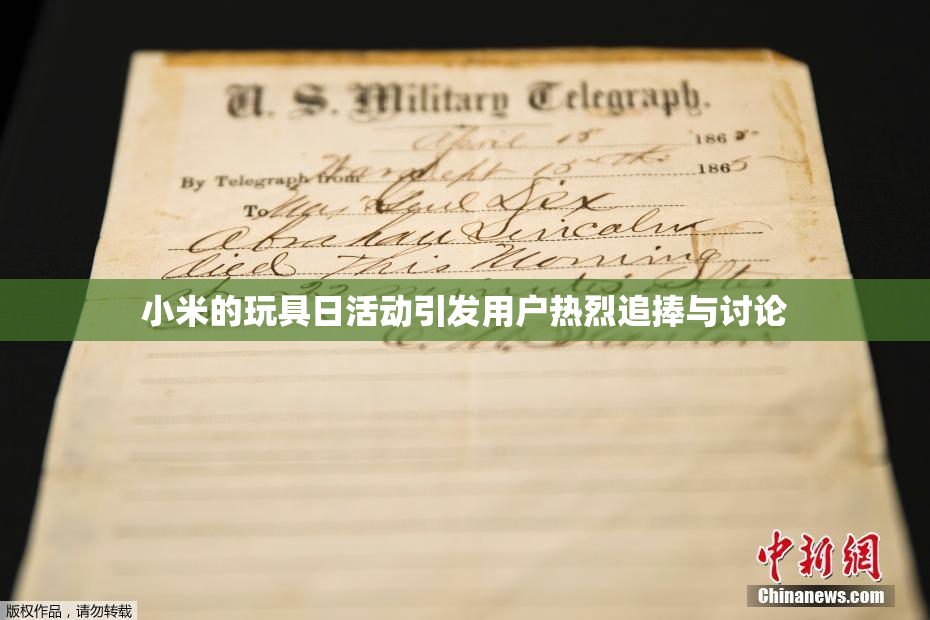 U. S. Military Telegraph.
April 15 1865
By Telegraph from War Dept 15th 1865
To Maj Genl Dix
Abraham Lincoln
died This Morning
at 22 minutes after
小米的玩具日活动引发用户热烈追捧与讨论
E. M. Stanton
中新网
Chinanews.com
版权作品，请勿转载